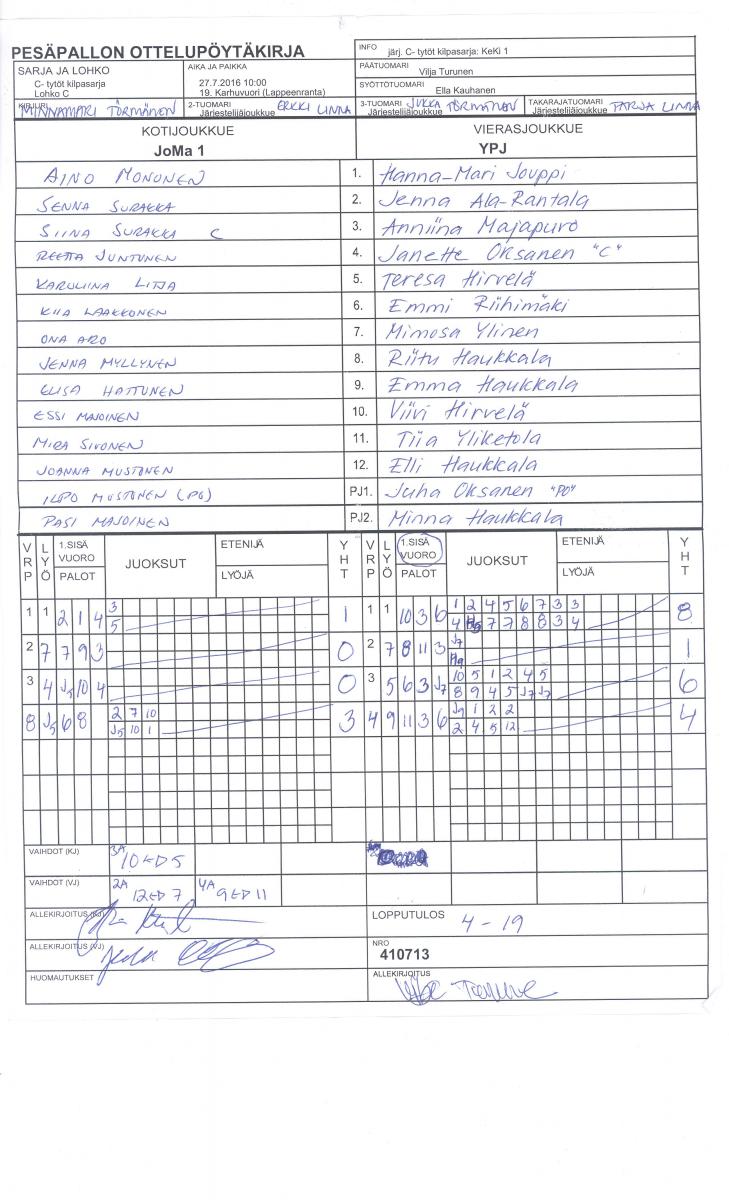 PESÄPALLON OTTELUPÖYTÄKIRJA
INFO järj. C- tytöt kilpasarja: KeKi 1
SARJA JA LOHKO
C- tytöt kilpasarja
Lohko C
AIKA JA PAIKKA
27.7.2016 10:00
19. Karhuvuori (Lappeenranta)
PÄÄTUOMARI
Vilja Turunen
SYÖTTÖTUOMARI
Ella Kauhanen
KIRJURI MINNAMARI TÖRMÄNEN
2-TUOMARI ERKKI LINNA
Järjestelijäjoukkue
3-TUOMARI JUKKA TÖRMÄNEN
Järjestelijäjoukkue
TAKARAJATUOMARI TARJA LINNA
Järjestelijäjoukkue
KOTIJOUKKUE VIERASJOUKKUE
JoMa 1 YPJ
AINO MONONEN 1. Hanna-Mari Jouppi
SENNA SURAKKA 2. Jenna Ala-Rantala
SIINA SURAKKA C 3. Anniina Majapuro
REETTA JUNTUNEN 4. Janette Oksanen "C"
KAROLIINA LITJA 5. Teresa Hirvelä
KIIA LAAKKONEN 6. Emmi Riihimäki
ONA ARO 7. Mimosa Ylinen
JENNA MYLLYNEN 8. Riitu Haukkala
ELISA HATTUNEN 9. Emma Haukkala
ESSI MAJOINEN 10. Viivi Hirvelä
MIRA SIVONEN 11. Tiia Yliketola
JOANNA MUSTONEN 12. Elli Haukkala
ILPO MUSTONEN (PG) PJ1. Juha Oksanen "PO"
PASI MAJOINEN PJ2. Minna Haukkala
VRP LYÖ 1.SISÄ VUORO PALOT JUOKSUT ETENIJÄ LYÖJÄ YHT VRP LYÖ 1.SISÄ VUORO PALOT JUOKSUT ETENIJÄ LYÖJÄ YHT
1 1 2 1 4 3 1 1 1 10 3 6 1 2 4 5 6 7 3 3 8
5 4 7 7 8 8 3 4
2 7 7 9 3 0 2 7 8 11 3 J7 1
3 4 J5 10 4 0 3 5 6 3 J7 10 5 1 2 4 5 6
8 9 4 5 J7 J7
8 J5 6 8 2 7 10 3 4 9 11 3 6 J9 1 2 2 4
J5 10 1 2 4 5 12
VAIHDOT (KJ) 3A 10 ED 5
VAIHDOT (VJ) 2A 12 ED 7 4A 9 ED 11
ALLEKIRJOITUS (KJ)
LOPPUTULOS 4 - 19
ALLEKIRJOITUS (VJ)
NRO
410713
HUOMAUTUKSET
ALLEKIRJOITUS